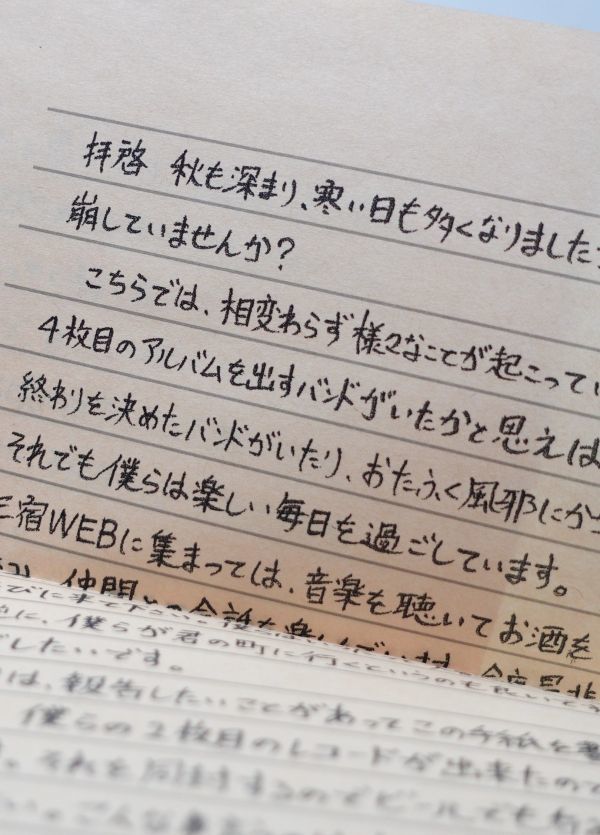 拝啓 秋も深まり、寒い日も多くなりました
崩していませんか?
こちらでは、相変わらず様々なことが起こってい
4枚目のアルバムを出すバンドがいたかと思えば
終わりを決めたバンドがいたり、おたふく風邪にか
それでも僕らは楽しい毎日を過ごしています。
三宿WEBに集まっては、音楽を聴いてお酒を
仲間との会話を楽しんでいます。今度是非
に、僕らが君の町に行くというのも良いで
したいです。
は、報告したいことがあってこの手紙を
僕らの2枚目のレコードが出来たので
それを同封するのでビールでも